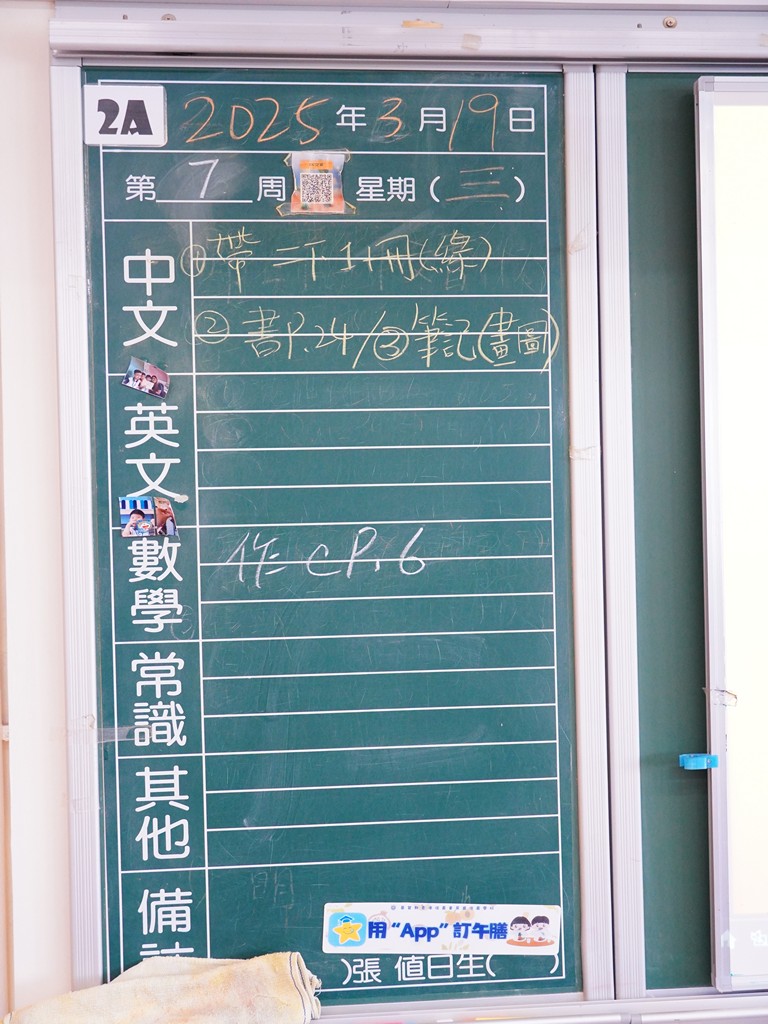 2A 2025年3月19日
第7周 星期(三)
中文
①帶二下1+冊(綠)
②書P.24/③筆記(畫圖)
英文
數學
作C P.6
常識
其他
備
用“App”訂午膳
)張 值日生( )